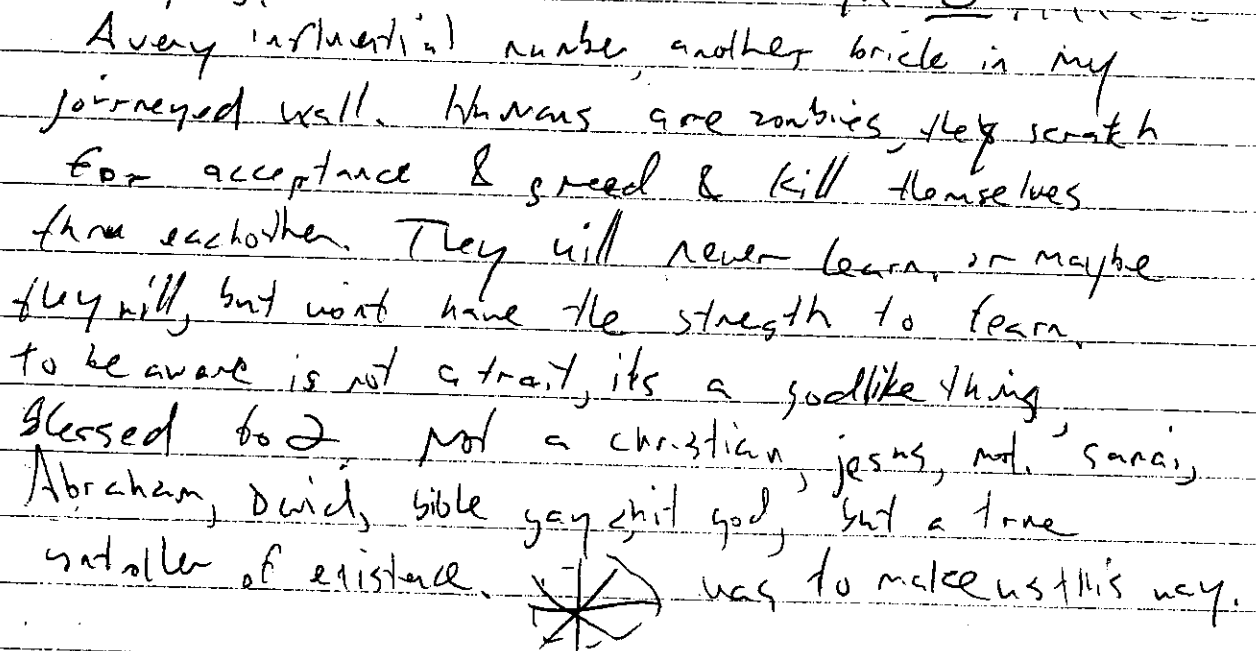 A very influential number, another brick in my
journeyed wall. Humans are zombies, they scratch
for acceptance & greed & kill themselves
thru eachother. They will never learn, or maybe
they will, but wont have the stregth to fearn.
to be aware is not a trait, its a godlike thing,
Blessed to 2. Not a christian, jesus, not
Abraham, David, bible gay shit god, but a true
of existence. was to make us this way.